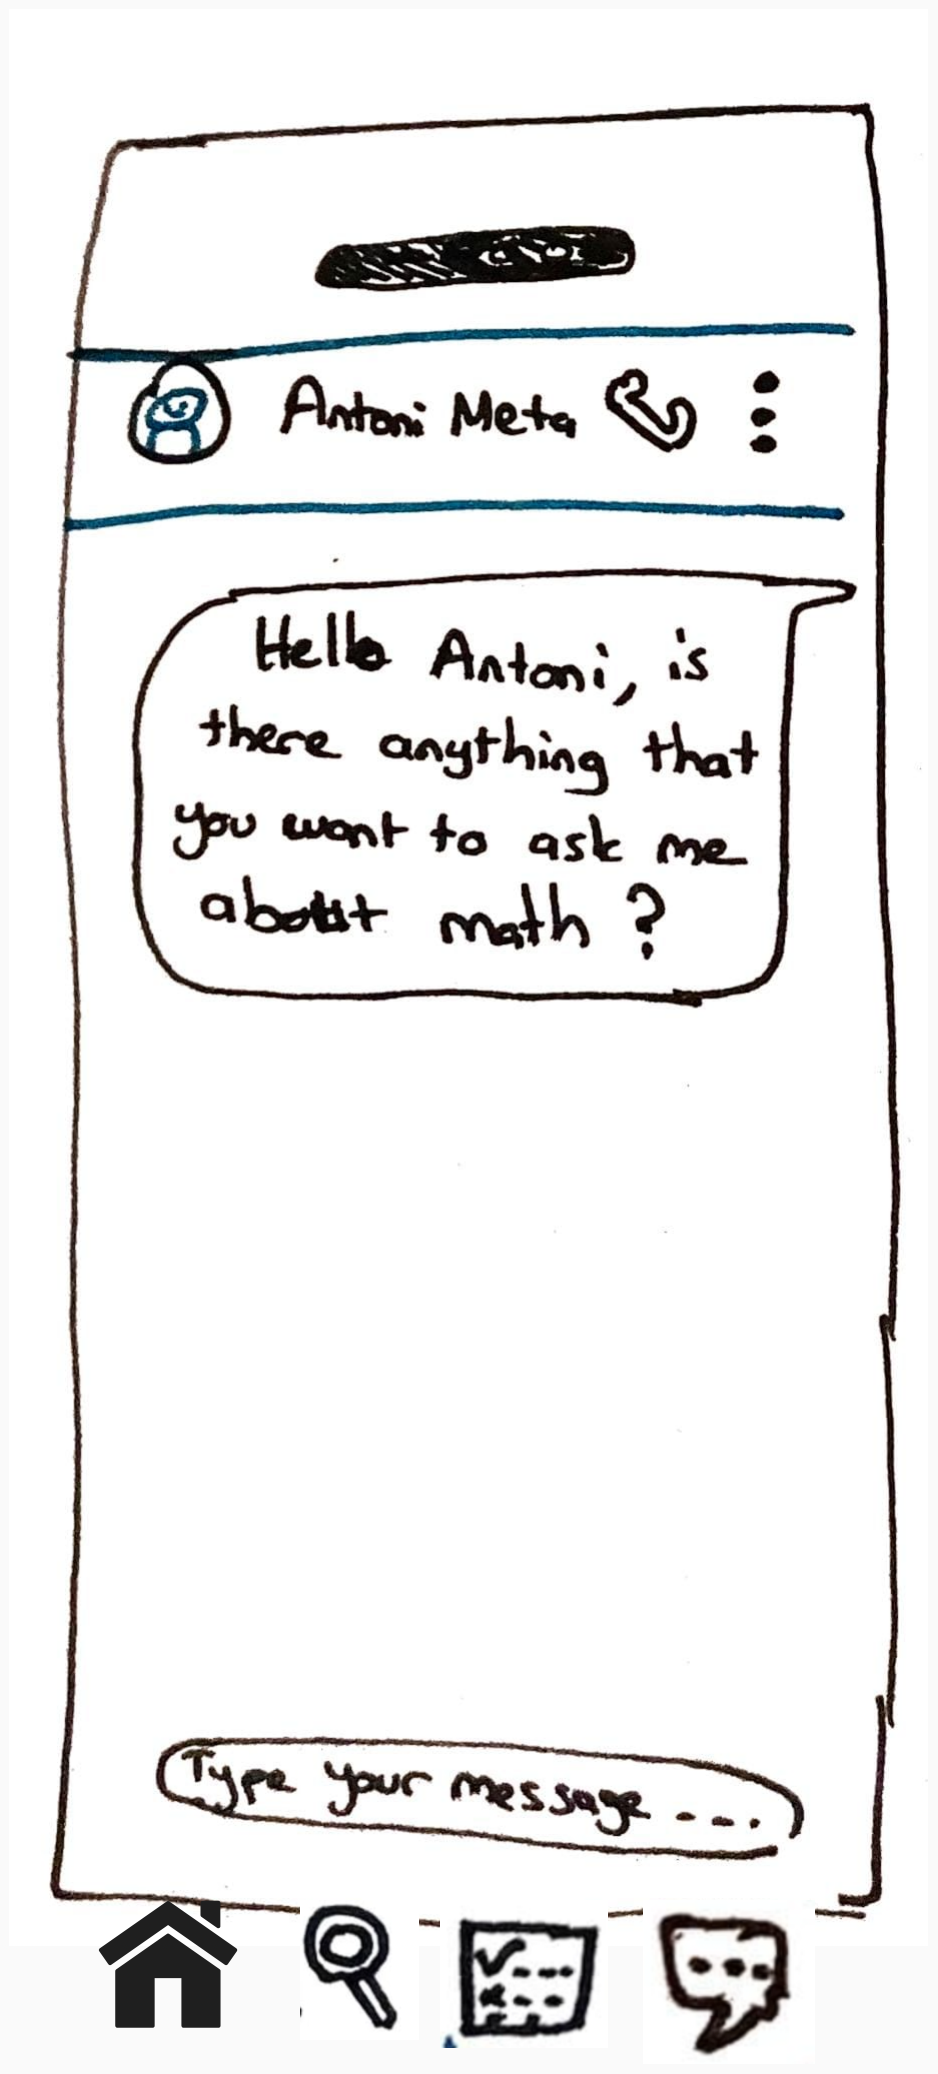 Antoni Meta
Hello Antoni, is
there anything that
you want to ask me
about math ?
Type your message ....